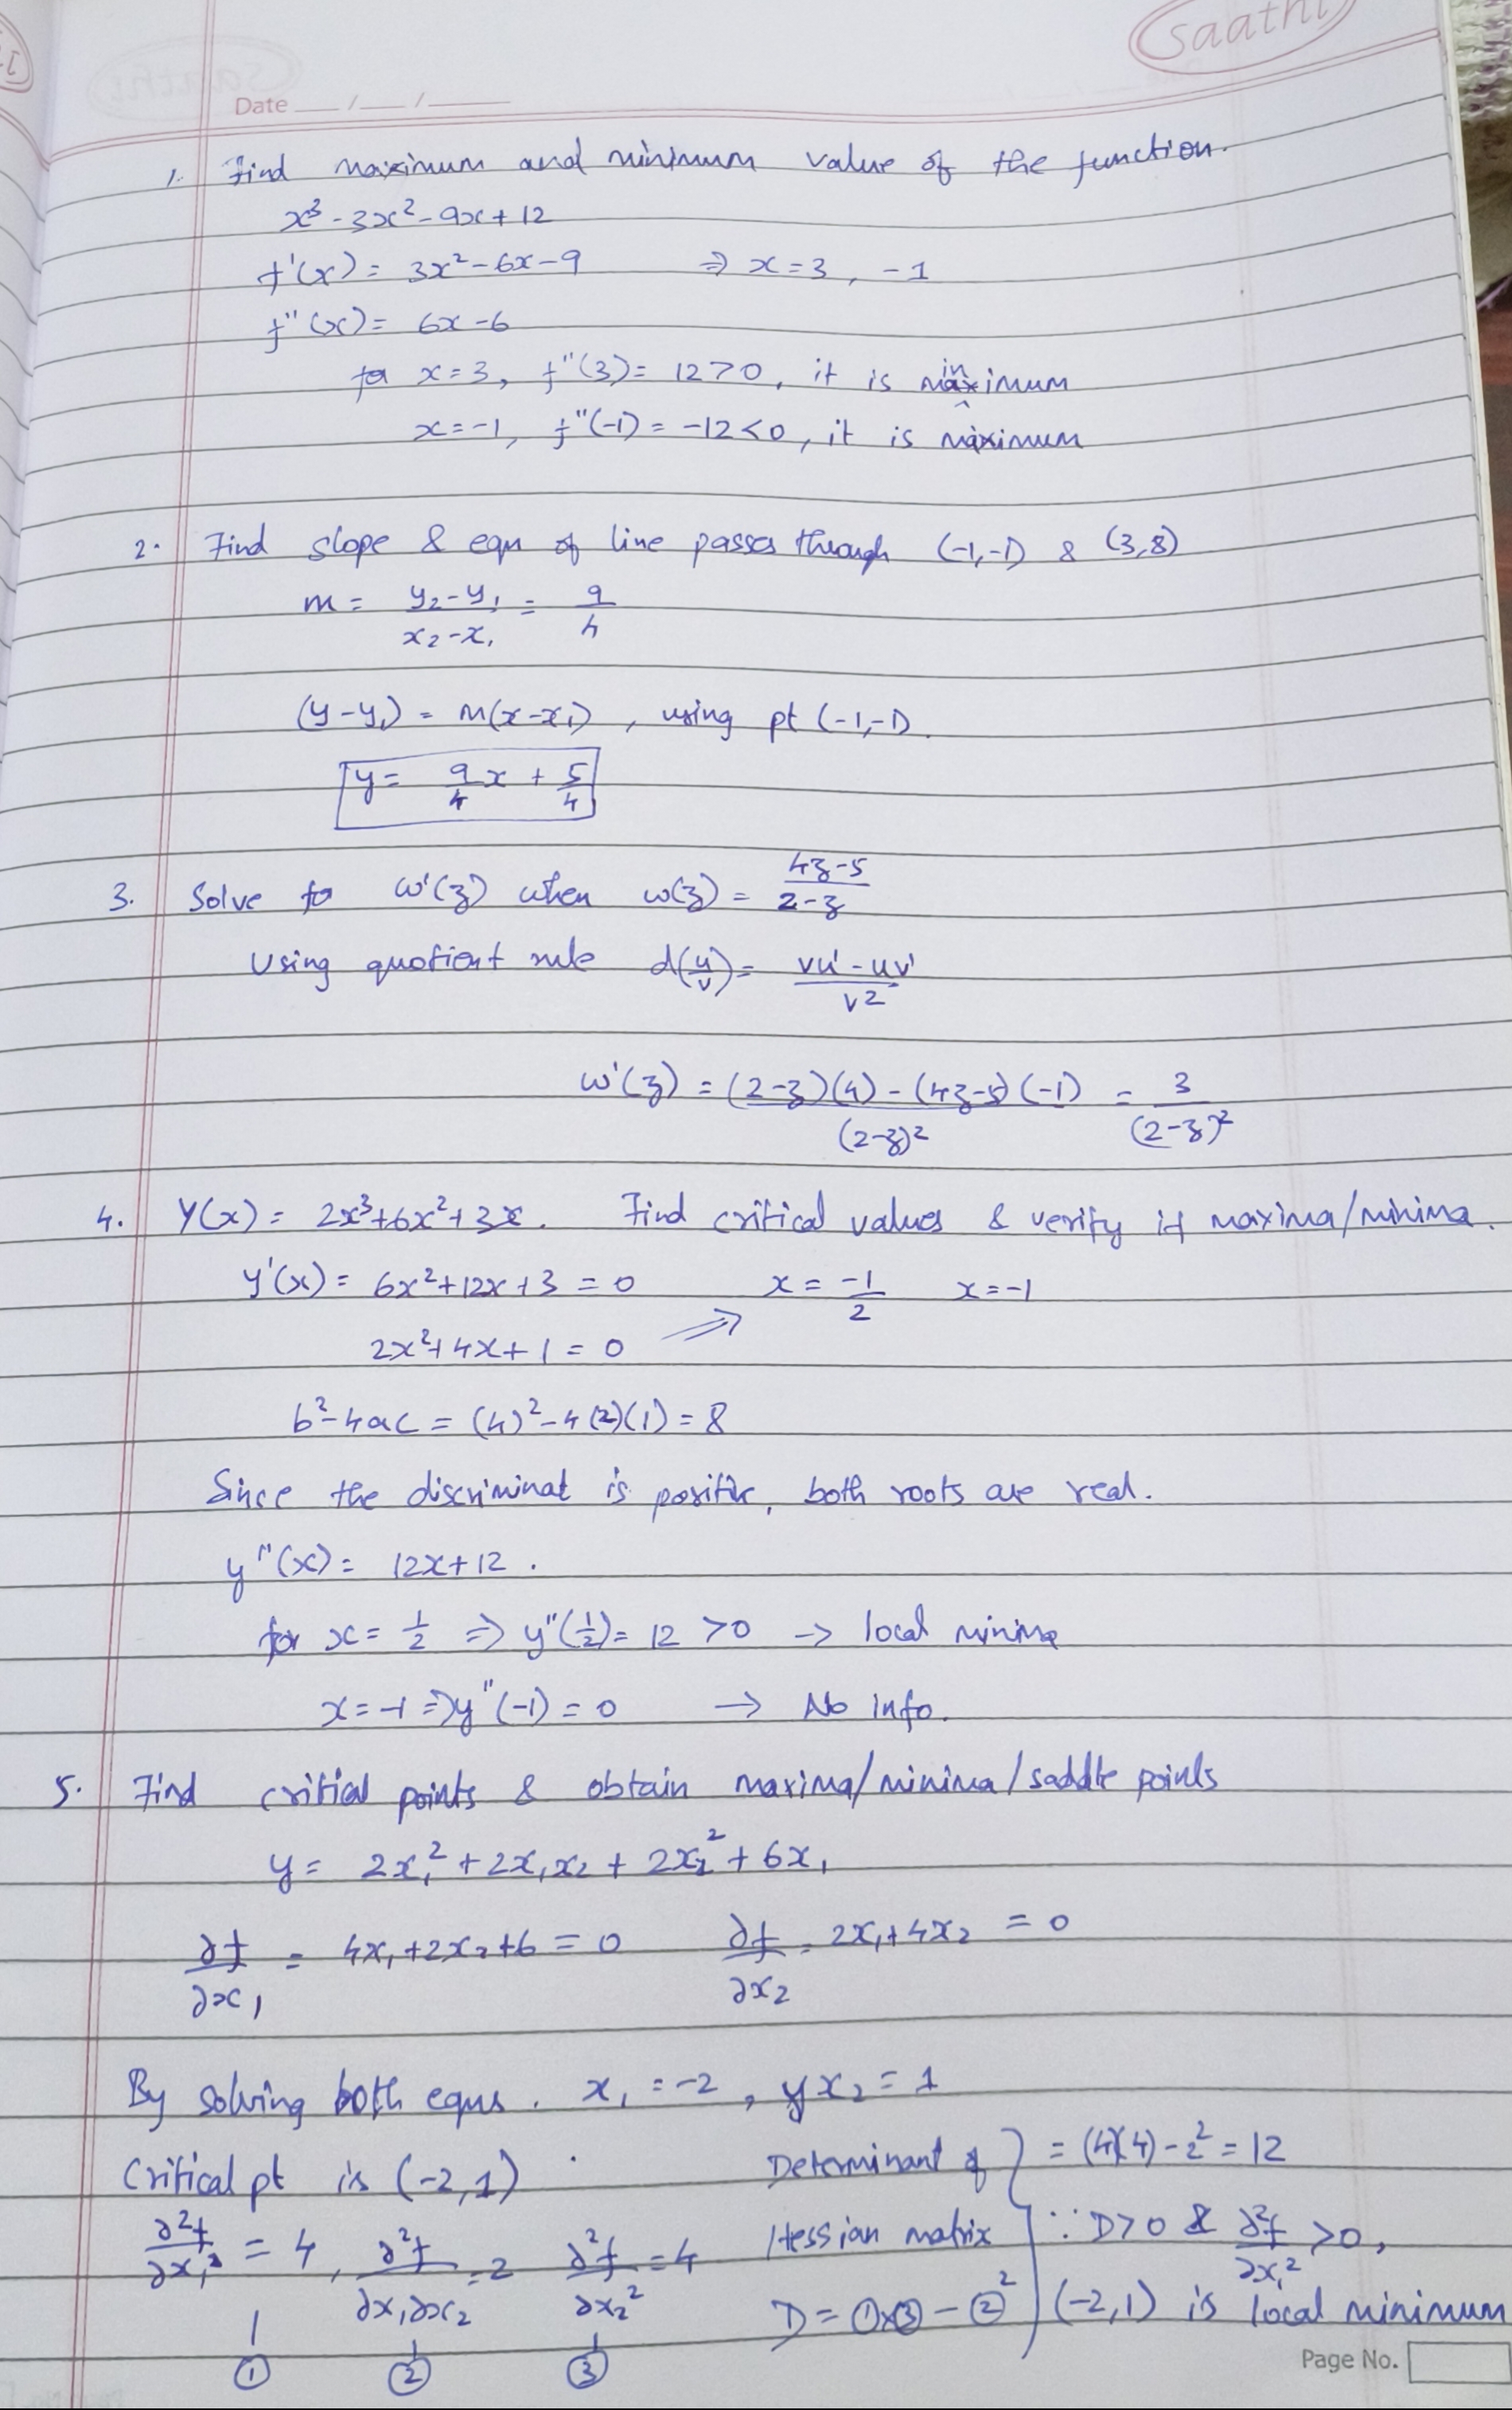 saathi
Date __/__/____
1. Find maximum and minimum value of the function.
x³ - 3x² - 9x + 12
f'(x) = 3x² - 6x - 9 ⇒ x = 3, -1
f''(x) = 6x - 6
for x = 3, f''(3) = 12 > 0, it is minimum
x = -1, f''(-1) = -12 < 0, it is maximum
2. Find slope & eqn of line passes through (-1,-1) & (3,8)
m = (y₂ - y₁)/(x₂ - x₁) = 9/4
(y - y₁) = m(x - x₁), using pt (-1,-1).
y = 9/4 x + 5/4
3. Solve for ω'(z) when ω(z) = (4z-5)/(2-z)
Using quotient rule d(u/v) = (vu' - uv')/v²
ω'(z) = ((2-z)(4) - (4z-5)(-1))/(2-z)² = 3/(2-z)²
4. Y(x) = 2x³ + 6x² + 3x. Find critical values & verify if maxima/minima.
y'(x) = 6x² + 12x + 3 = 0 x = -1/2 x = -1
2x² + 4x + 1 = 0 ⇒
b² - 4ac = (4)² - 4(2)(1) = 8
Since the discriminat is positive, both roots are real.
y''(x) = 12x + 12.
for x = 1/2 ⇒ y''(1/2) = 12 > 0 → local minima
x = -1 ⇒ y''(-1) = 0 → No info.
5. Find critical points & obtain maxima/minima/saddle points
y = 2x₁² + 2x₁x₂ + 2x₂² + 6x₁
∂f/∂x₁ = 4x₁ + 2x₂ + 6 = 0 ∂f/∂x₂ = 2x₁ + 4x₂ = 0
By solving both equs. x₁ = -2, x₂ = 1
Critical pt is (-2,1).
∂²f/∂x₁² = 4, ∂²f/∂x₁∂x₂ = 2 ∂²f/∂x₂² = 4
① ② ③
Determinant of } = (4)(4) - 2² = 12
Hessian matrix ∵ D>0 & ∂²f/∂x₁² > 0,
D = ①×③ - ②² (-2,1) is local minimum
Page No.